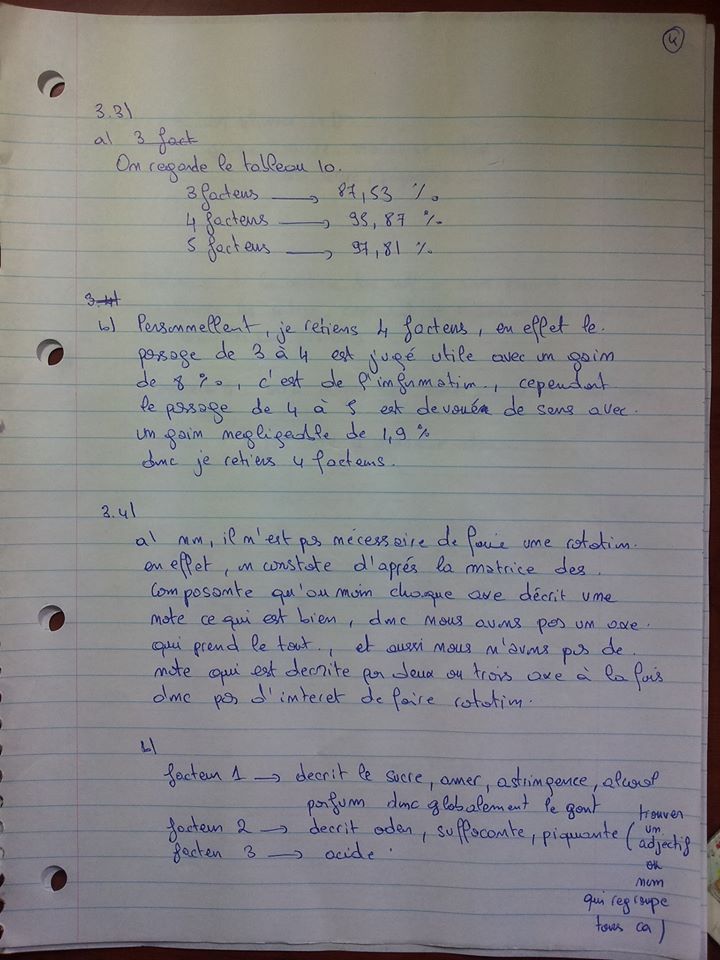 4
3.3)
a) 3 fact
On regarde le tableau 10.
3 facteurs → 87,53 %
4 facteurs → 95,87 %
5 facteurs → 97,81 %
3.4)
b) Personnellent, je retiens 4 facteurs, en effet le
passage de 3 à 4 est jugé utile avec un gain
de 8 %, c'est de l'information, cependant
le passage de 4 à 5 est de sens avec
un gain negligeable de 1,9 %
donc je retiens 4 facteurs.
3.4)
a) non, il n'est pas nécessaire de faire une rotation.
en effet, on constate d'aprés la matrice des
Composante qu'au moin chaque axe décrit une
note ce qui est bien, donc nous avons pas un axe
qui prend le tout, et aussi nous n'avons pas de
note qui est decrite par deux ou trois axe à la fois
donc pas d'interet de faire rotation.
b)
facteur 1 → decrit le sucre, amer, astringence, alcool
parfum donc globalement le gout
facteur 2 → decrit oder, suffocante, piquante (trouver
un
adjectif
ou
nom
qui regroupe
tous ca)
facteur 3 → acide.